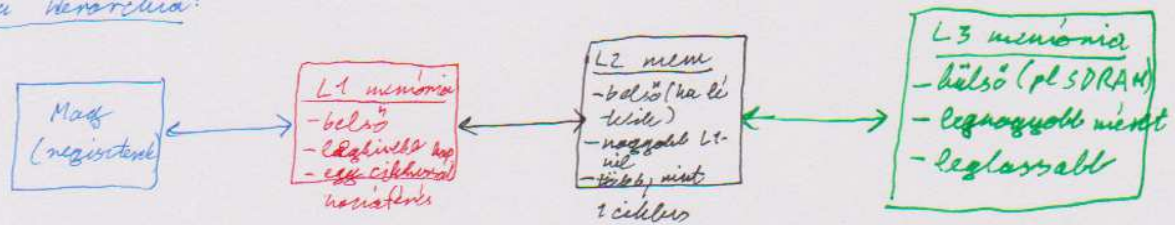 hierarchia:
Mag
(regiszterek)
L1 memória
- belső
- legkisebb
- egy ciklusos
hozzáférés
L2 mem
- belső (ha lé
tezik)
- nagyobb L1-
nél
- több, mint
1 ciklus
L3 memória
- külső (pl SDRAM)
- legnagyobb méret
- leglassabb